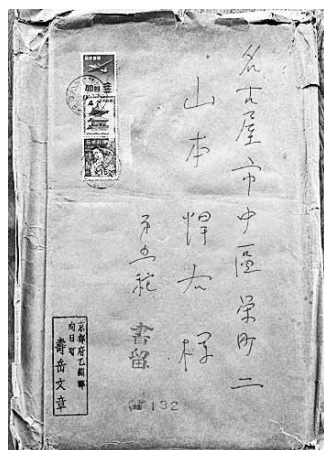 名古屋市中區栄町二
山本悍右様
書留
132
京都府乙訓郡
向日町
壽岳文章